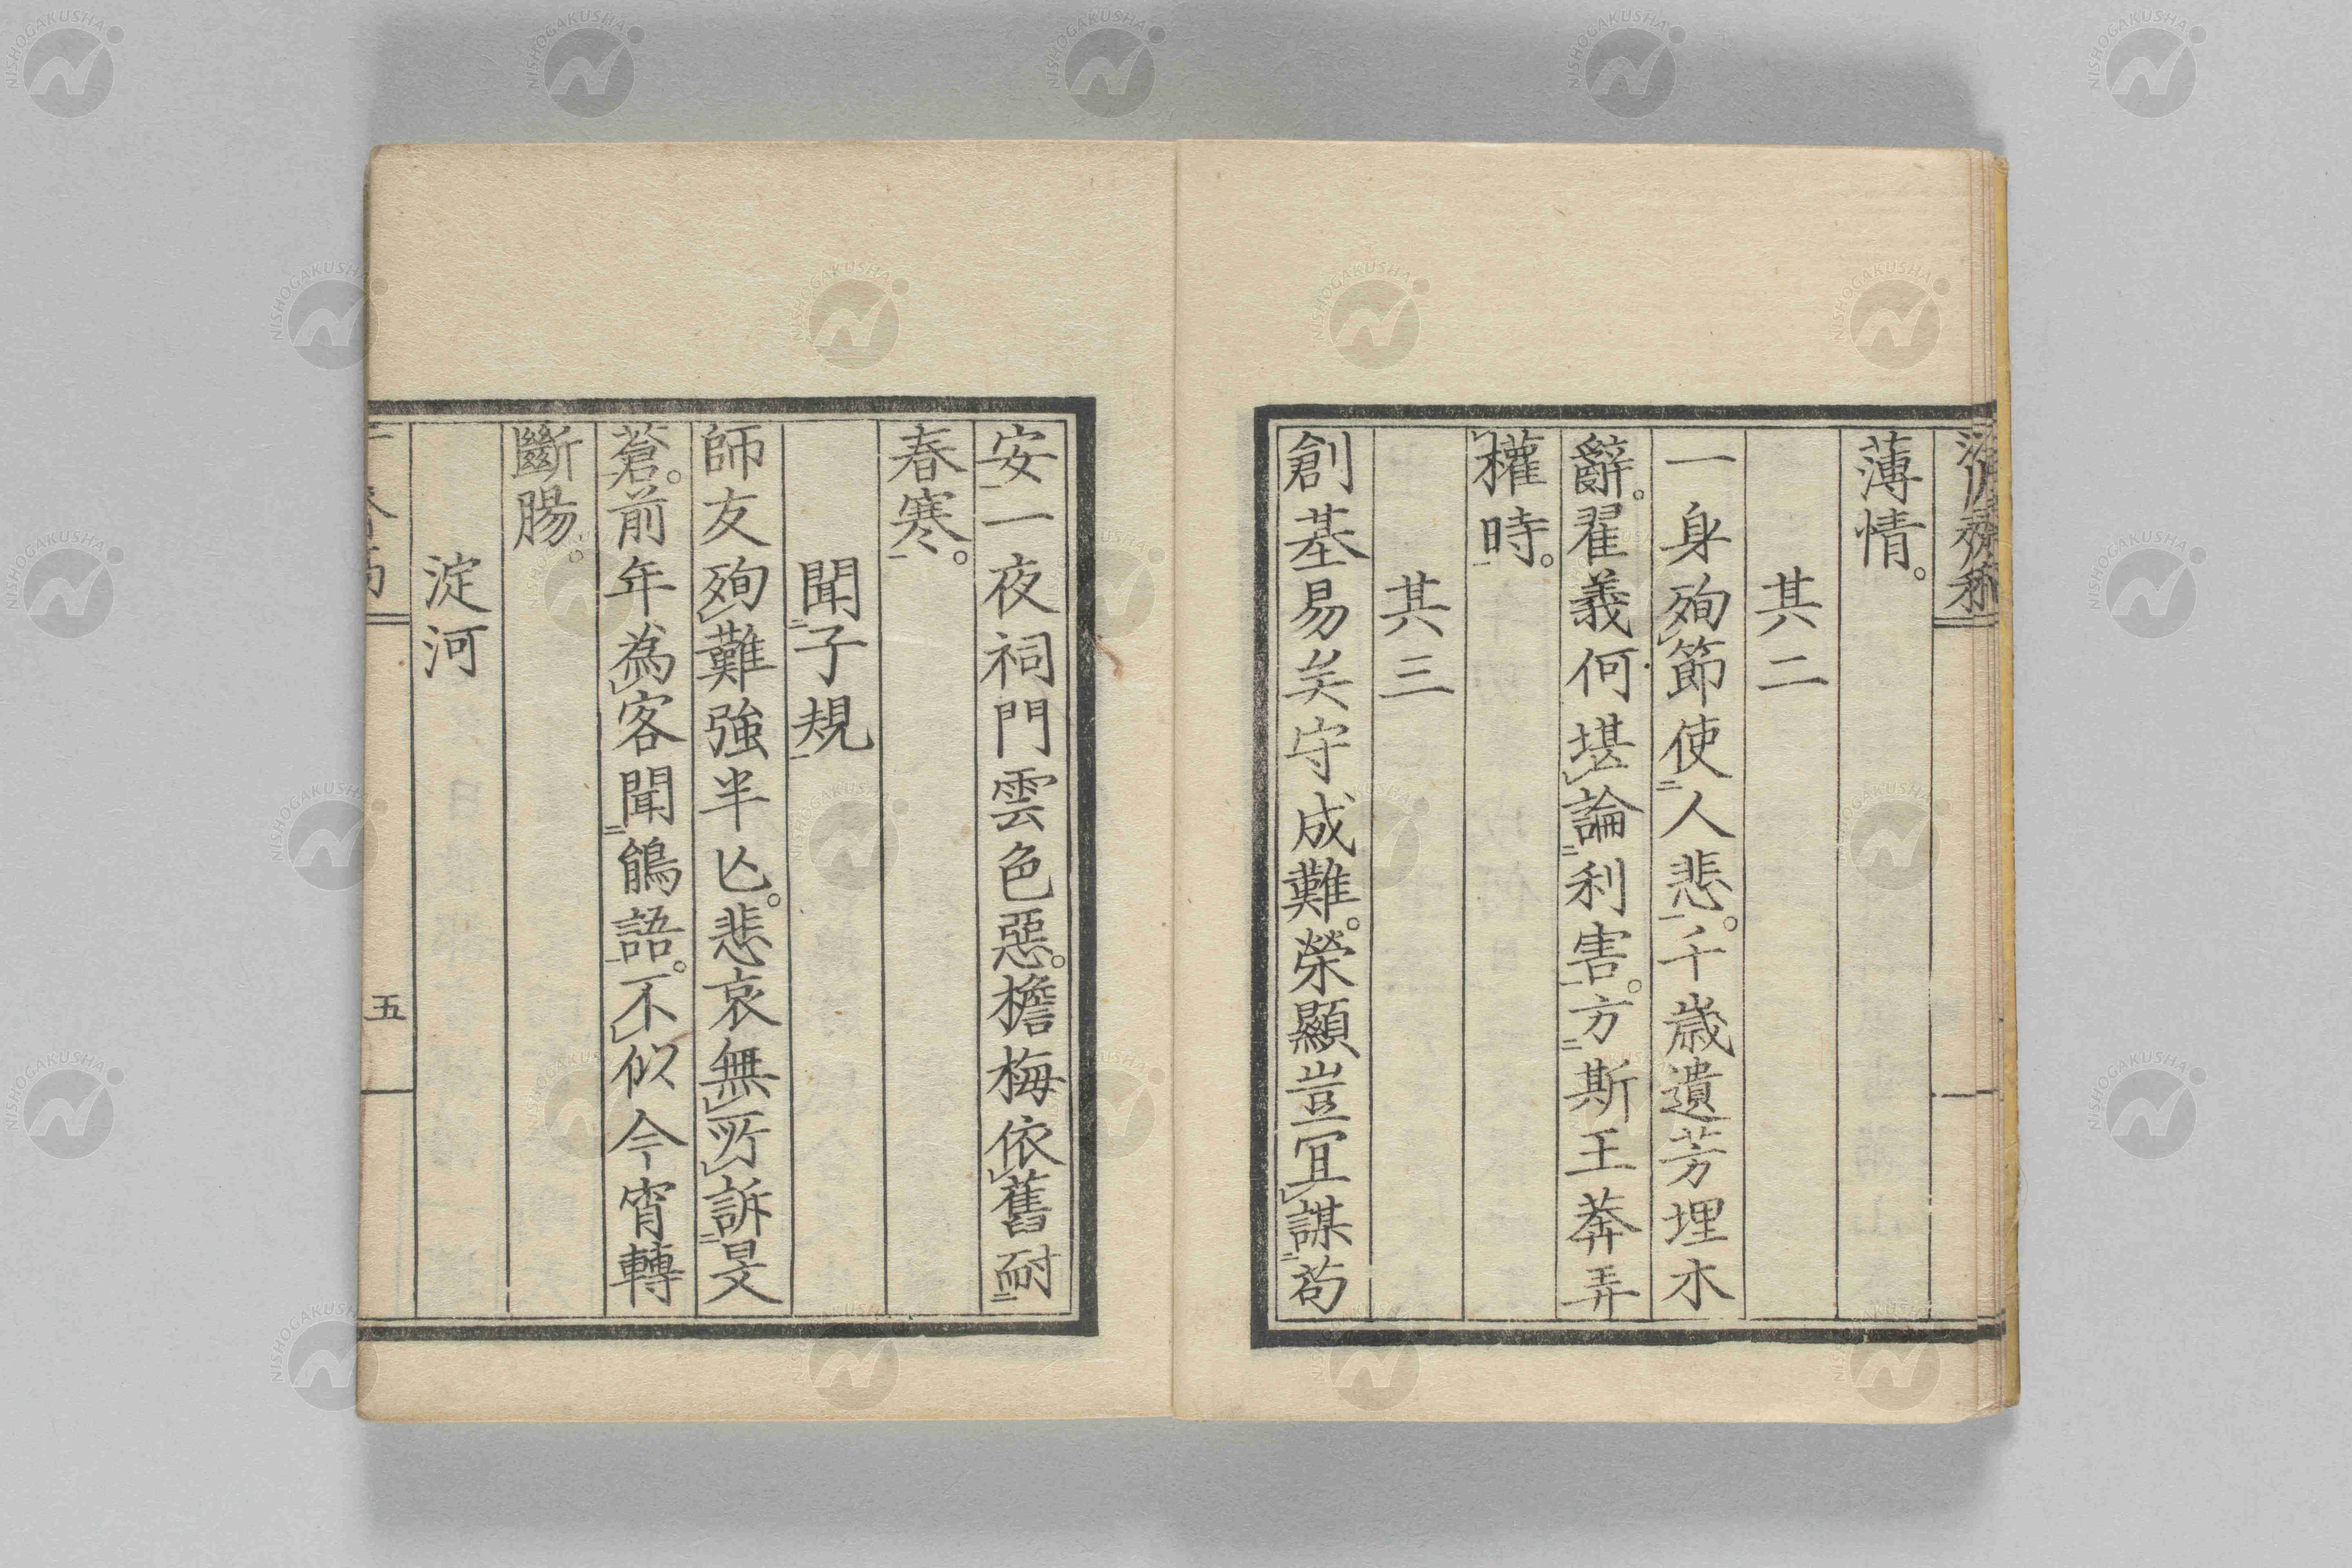 薄情。
其二
一身殉節使人悲。千歳遺芳埋木
辭。翟義何堪論利害。方斯王莽弄
權時。
其三
創基易矣守成難。榮顯豈宜謀苟
安一夜祠門雲色惡。檐梅依舊耐
春寒。
聞子規
師友殉難強半亾。悲哀無所訴旻
蒼。前年為客聞鵑語。不似今宵轉
斷腸。
淀河
五